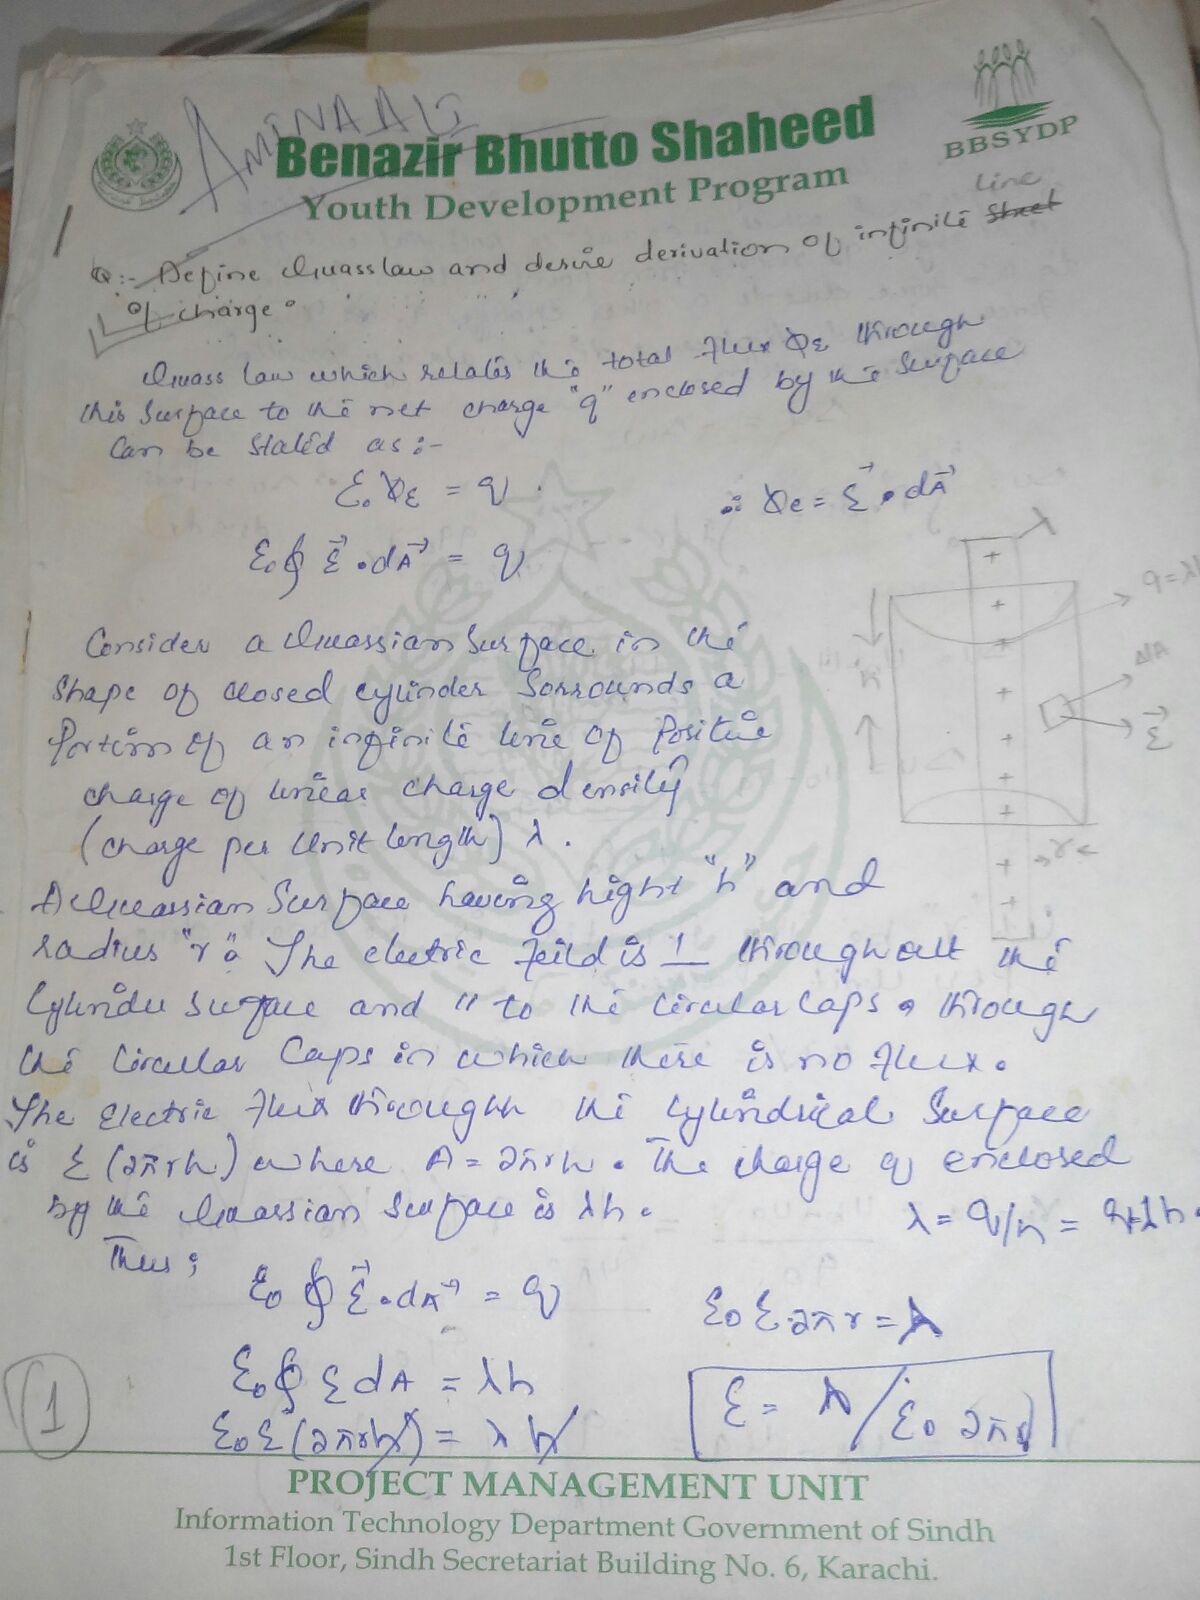 AMINA ALI
Benazir Bhutto Shaheed
Youth Development Program
BBSYDP
Q:- Define Guass law and derive derivation of infinite Sheet Line
of charge.
Guass law which relates the total flux φε through
this surface to the net charge "q" enclosed by the surface
Can be stated as:-
ε₀ φε = q .
∴ φe = ε⃗ . dA⃗
ε₀ ∮ ε⃗ . dA⃗ = q
λ
q = λ
ΔA
ε⃗
h
r
Consider a Guassian Surface in the
shape of closed cylinder Sorrounds a
Portion of an infinite line of Positive
charge of linear charge density
(charge per Unit length) λ.
A Guassian Surface having hight "h" and
radius "r". The electric feild is ⊥ throughout the
Cylinder surface and " to the circular caps. through
the Circular Caps in which there is no flux.
The Electric flux through the Cylindrical Surface
is ε (2πrh) where A = 2πrh. The charge q enclosed
by the Guassian Surface is λh.
λ = q/h = q=λh.
Thus;
ε₀ ∮ ε⃗ . dA⃗ = q
ε₀ ε 2πr = λ
ε₀ ∮ ε dA = λh
ε₀ ε (2πrh) = λh
ε = λ / ε₀ 2πr
1
PROJECT MANAGEMENT UNIT
Information Technology Department Government of Sindh
1st Floor, Sindh Secretariat Building No. 6, Karachi.